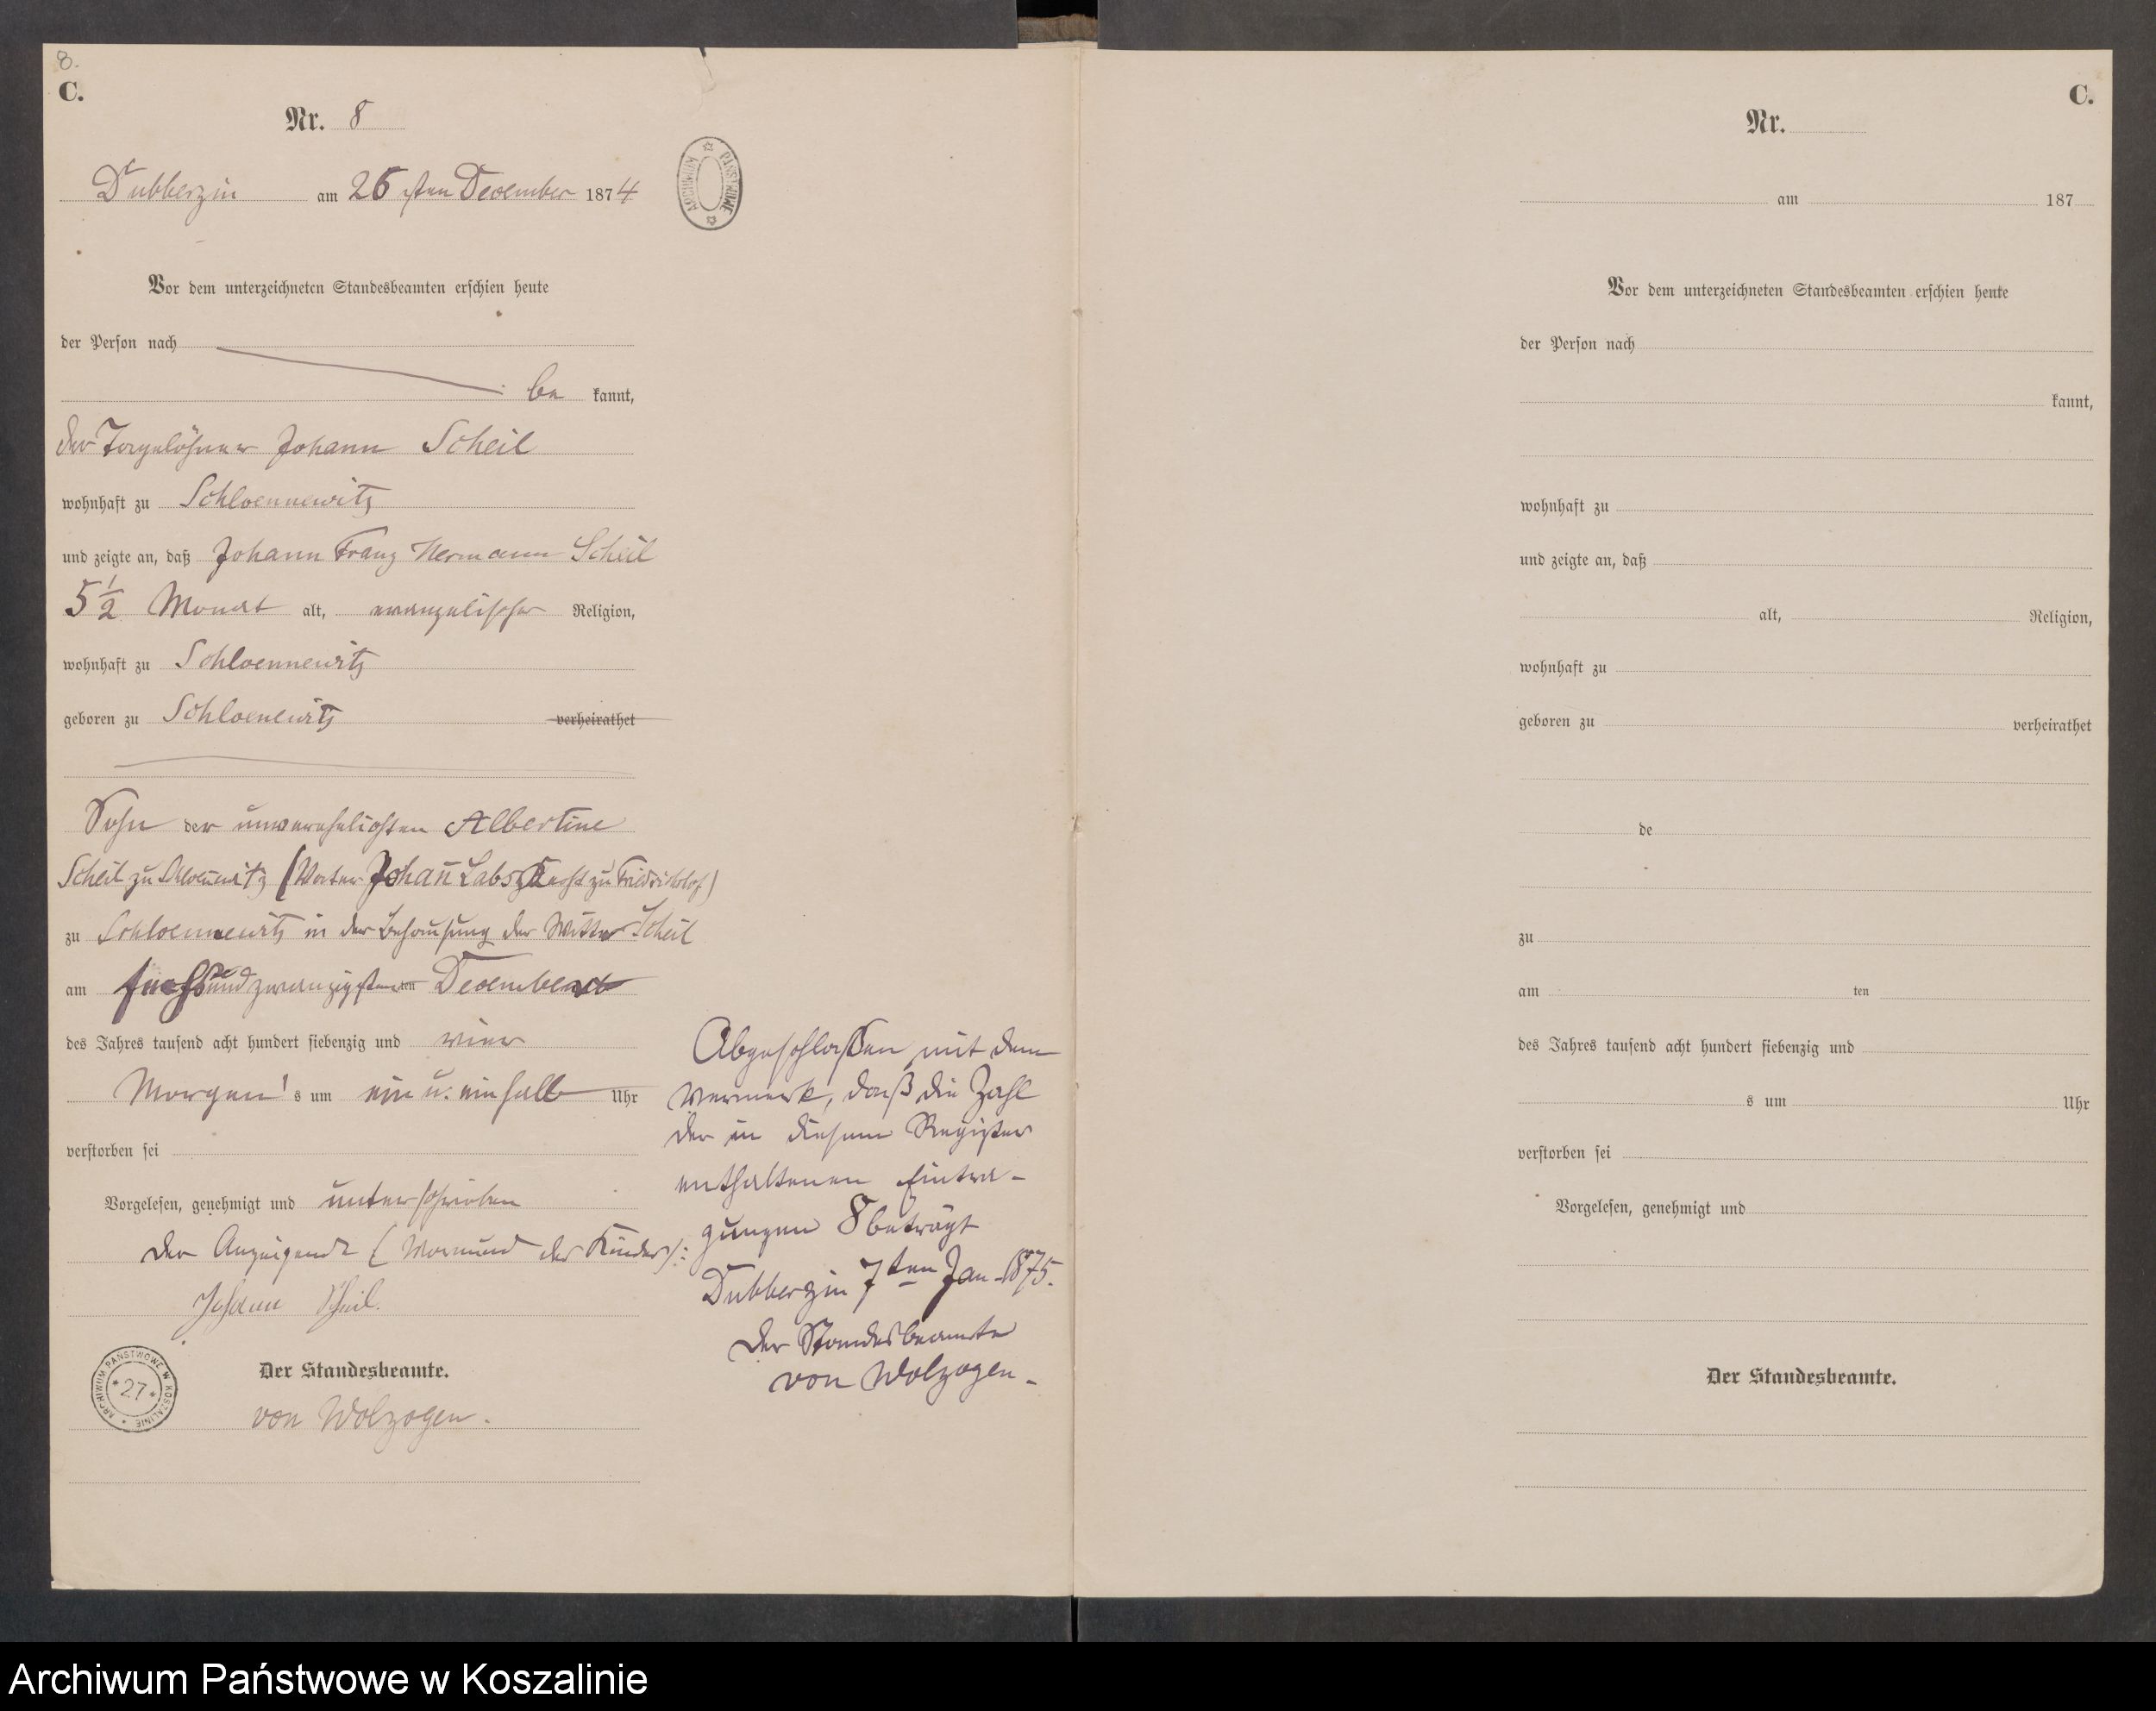 8.
C.
Nr. 8
Dubberzin am 26sten December 1874
ARCHIWUM PAŃSTWOWE
Vor dem unterzeichneten Standesbeamten erschien heute
der Person nach
be kannt,
der Tagelöhner Johann Scheil
wohnhaft zu Schloennewitz
und zeigte an, daß Johann Franz Hermann Scheil
5 1/2 Monat alt, evangelischer Religion,
wohnhaft zu Schloennewitz
geboren zu Schloenewitz verheirathet
Sohn der unverehelichten Albertine
Scheil zu (Vater Johan̄ Labs, Knecht zu Friedrichshof)
zu Schloennewitz in der Behausung der Wittwe Scheil
am undzwanzigsten ten December
des Jahres tausend acht hundert siebenzig und vier
Morgen's um ein u. ein halb Uhr
verstorben sei
Vorgelesen, genehmigt und unterschrieben
der Anzeigende (Vormund des Kindes):
Johann Scheil.
Der Standesbeamte.
von Wolzogen.
ARCHIWUM PAŃSTWOWE W KOSZALINIE
* 27 *
Abgeschlossen mit dem
Vermerk, daß die Zahl
der in diesem Register
enthaltenen Eintra-
gungen 8 beträgt
Dubberzin 7ten Jan. 1875.
Der Standesbeamte
von Wolzogen.
C.
Nr.
am 187
Vor dem unterzeichneten Standesbeamten erschien heute
der Person nach
kannt,
wohnhaft zu
und zeigte an, daß
alt, Religion,
wohnhaft zu
geboren zu verheirathet
de
zu
am ten
des Jahres tausend acht hundert siebenzig und
s um Uhr
verstorben sei
Vorgelesen, genehmigt und
Der Standesbeamte.
Archiwum Państwowe w Koszalinie